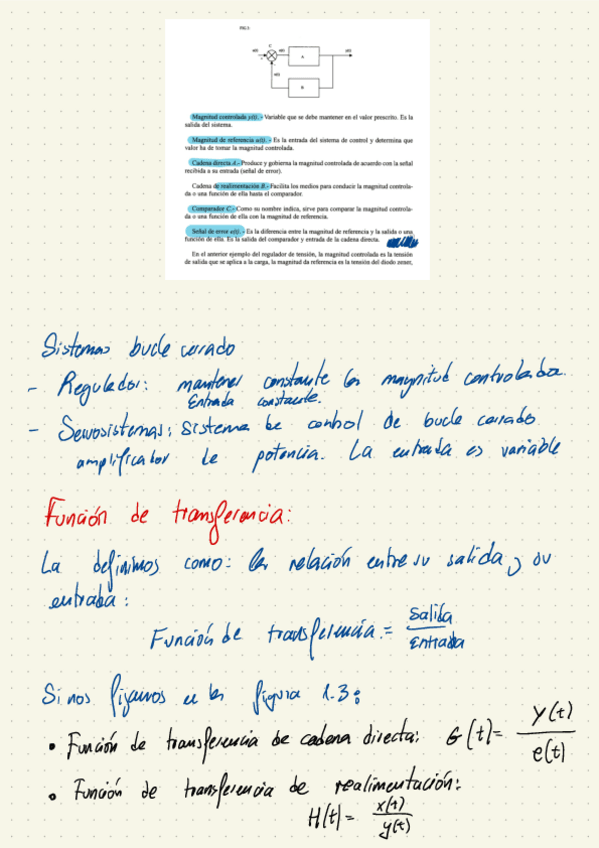 FIG.3
C
A
B
Magnitud controlada y(t). - Variable que se debe mantener en el valor prescrito. Es la
salida del sistema.
Magnitud de referencia u(t). - Es la entrada del sistema de control y determina que
valor ha de tomar la magnitud controlada.
Cadena directa A.- Produce y gobierna la magnitud controlada de acuerdo con la señal
recibida a su entrada (señal de error).
Cadena de realimentación B.- Facilita los medios para conducir la magnitud controla-
da o una función de ella hasta el comparador.
Comparador C.- Como su nombre indica, sirve para comparar la magnitud controla-
da o una función de ella con la magnitud de referencia.
Señal de error e(t). - Es la diferencia entre la magnitud de referencia y la salida o una
función de ella. Es la salida del comparador y entrada de la cadena directa.
En el anterior ejemplo del regulador de tensión, la magnitud controlada es la tensión
de salida que se aplica a la carga, la magnitud da referencia es la tensión del diodo zener,
Sistemas bucle cerrado
- Regulador: mantener constante la magnitud controlada.
Entrada constante.
- Servosistemas: Sistema de control de bucle cerrado
amplificador de potencia. La entrada es variable
Función de transferencia:
La definimos como: la relación entre su salida y su
entrada:
Función de transferencia = Salida / Entrada
Si nos fijamos en la figura 1.3:
• Función de transferencia de cadena directa: G(t) = y(t) / e(t)
• Función de transferencia de realimentación:
H(t) = x(t) / y(t)